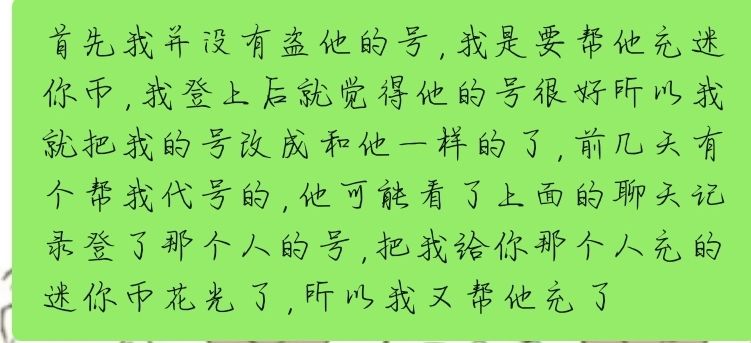 首先我并没有盗他的号,我是要帮他充迷
你币,我登上后就觉得他的号很好所以我
就把我的号改成和他一样的了,前几天有
个帮我代号的,他可能看了上面的聊天记
录登了那个人的号,把我给你那个人充的
迷你币花光了,所以我又帮他充了